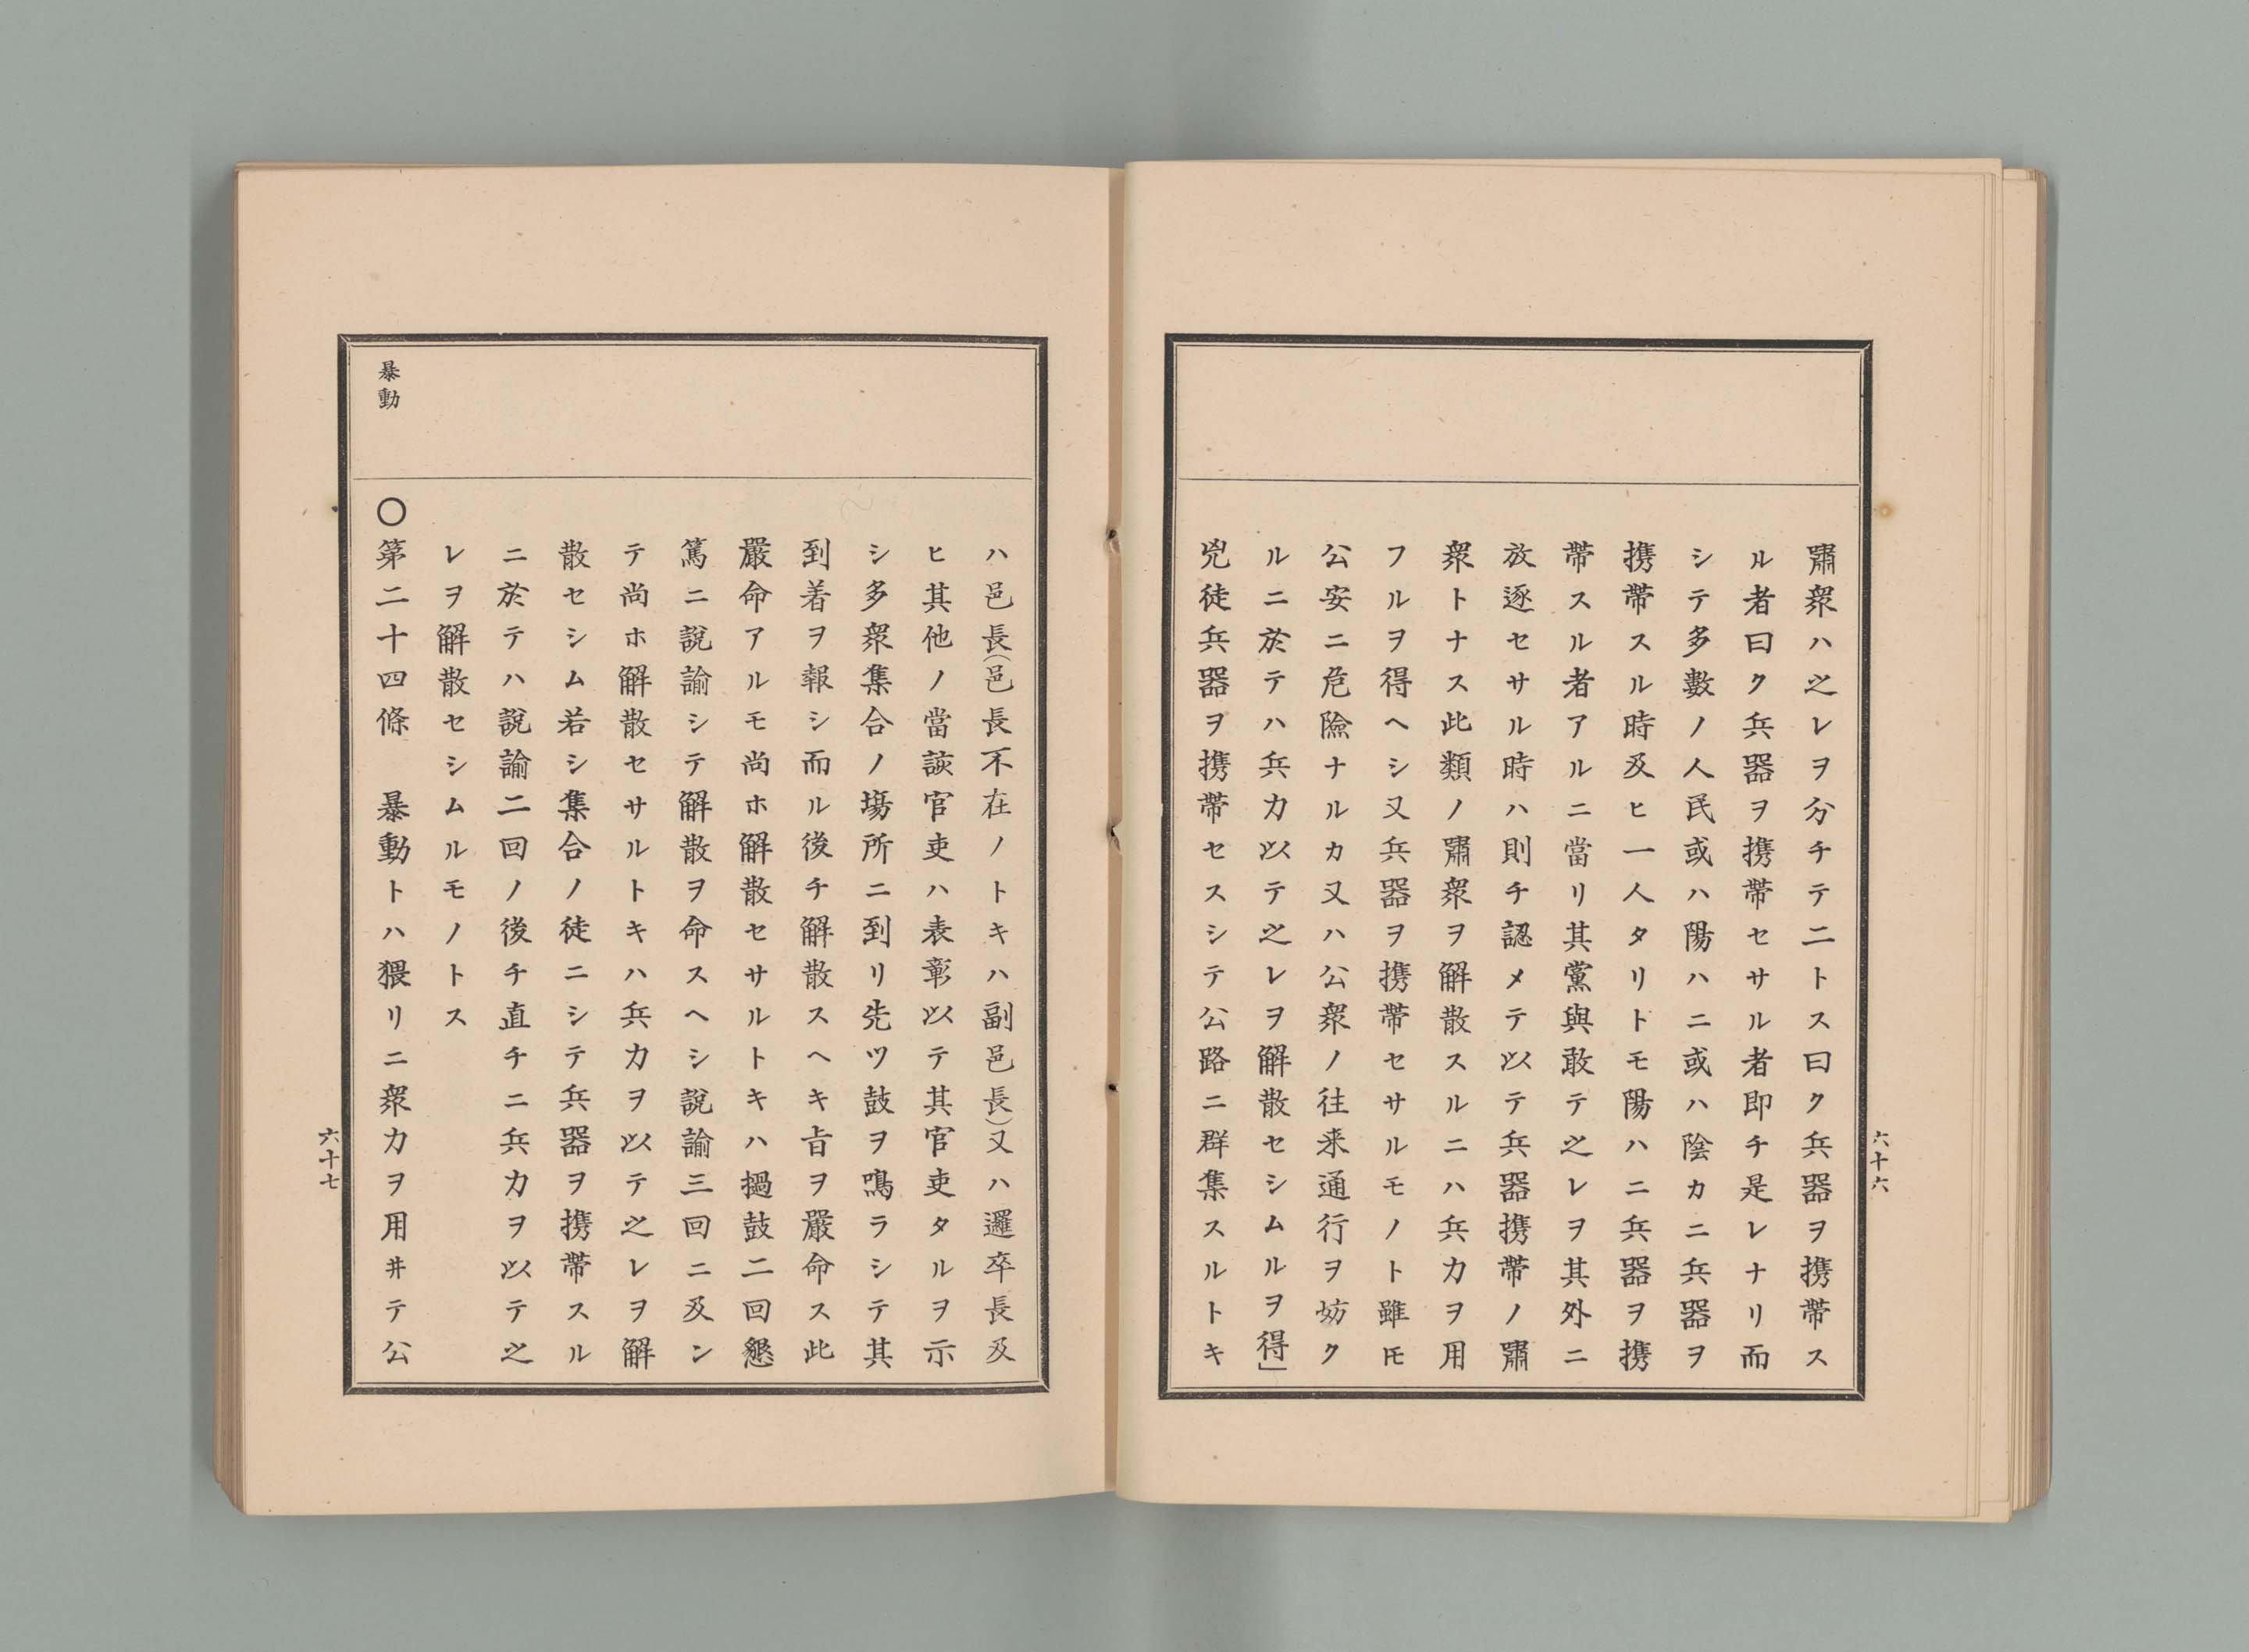 嘯衆ハ之レヲ分チテ二トス曰ク兵器ヲ携帶ス
ル者曰ク兵器ヲ携帶セサル者即チ是レナリ而
シテ多數ノ人民或ハ陽ハニ或ハ陰カニ兵器ヲ
携帶スル時及ヒ一人タリトモ陽ハニ兵器ヲ携
帶スル者アルニ當リ其黨與敢テ之レヲ其外ニ
放逐セサル時ハ則チ認メテ以テ兵器携帶ノ嘯
衆トナス此類ノ嘯衆ヲ解散スルニハ兵力ヲ用
フルヲ得ヘシ又兵器ヲ携帶セサルモノト雖𪜈
公安ニ危險ナルカ又ハ公衆ノ往来通行ヲ妨ク
ルニ於テハ兵力以テ之レヲ解散セシムルヲ得」
兇徒兵器ヲ携帶セスシテ公路ニ群集スルトキ
六十六
ハ邑長(邑長不在ノトキハ副邑長)又ハ邏卒長及
ヒ其他ノ當該官吏ハ表彰以テ其官吏タルヲ示
シ多衆集合ノ塲所ニ到リ先ツ鼓ヲ鳴ラシテ其
到着ヲ報シ而ル後チ解散スヘキ旨ヲ嚴命ス此
嚴命アルモ尚ホ解散セサルトキハ撾鼓二回懇
篤ニ説諭シテ解散ヲ命スヘシ説諭三回ニ及ン
テ尚ホ解散セサルトキハ兵力ヲ以テ之レヲ解
散セシム若シ集合ノ徒ニシテ兵器ヲ携帶スル
ニ於テハ説諭二回ノ後チ直チニ兵力ヲ以テ之
レヲ解散セシムルモノトス
暴動
〇第二十四條　暴動トハ猥リニ衆力ヲ用井テ公
六十七